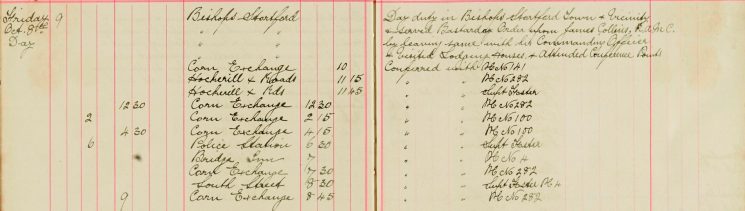 Friday 9 Bishops Stortford Day duty in Bishops Stortford Town & Vicinity
Oct. 8th " & served Bastardy Order upon James Collins, R.A.M.C.
Day " by leaving same with his Commanding Officer
" & visited Lodging Houses, & Attended Conference Points
Corn Exchange 10 Conferred with PC No 141
Hockerill & Roads 11 15 " " PC No 282
Hockerill & Rds 11 45 " " Supt Foster
12 30 Corn Exchange 12 30 " " PC No 282
2 Corn Exchange 2 15 " " PC No 100
4 30 Corn Exchange 4 15 " " PC No 100
6 Police Station 6 30 " " Supt Foster
Bridge Inn 7 " " PC No 4
Corn Exchange 7 30 " " PC No 282
South Street 8 30 " " Supt Foster PC 4
9 Corn Exchange 8 45 " " PC No 282